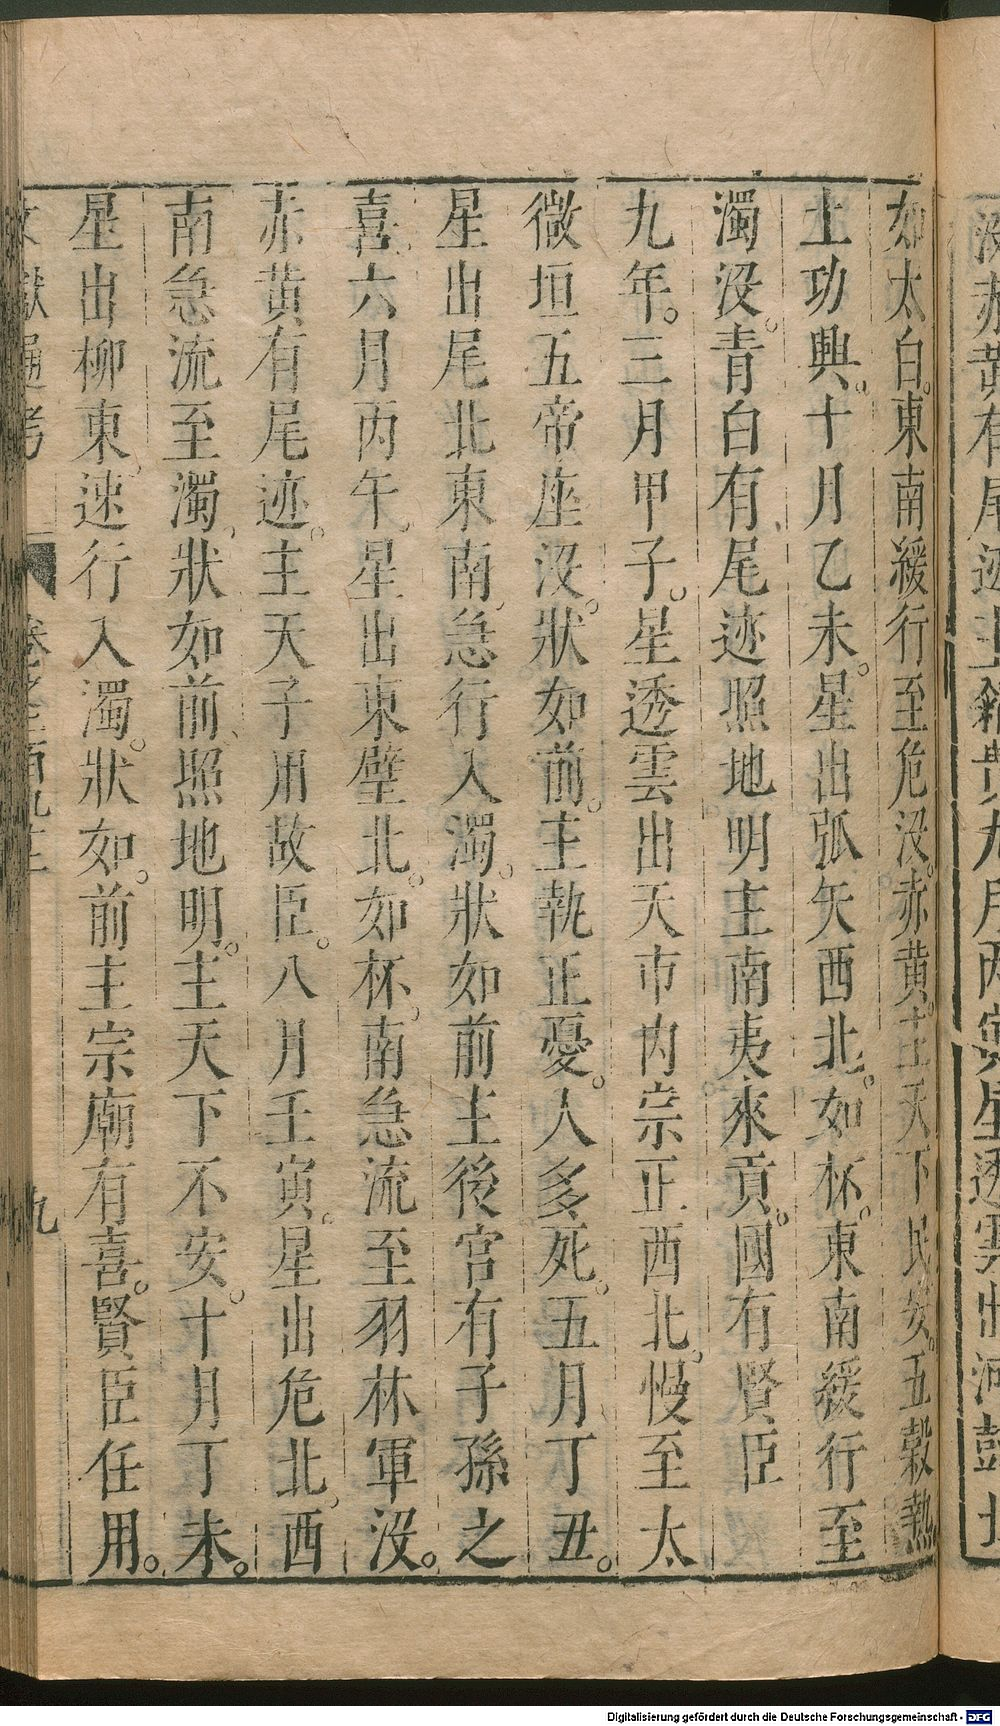 没赤黄有尾迹主
九月丙寅星透雲出河鼓北
如太白東南緩行至危没赤黄主天下民安五穀熟
土功興十月乙未星出弧矢西北如杯東南緩行至
濁没青白有尾迹照地明主南夷來貢國有賢臣
九年三月甲子星透雲出天市内宗正西北慢至太
微垣五帝座没狀如前主執正憂人多死五月丁丑
星出尾北東南急行入濁狀如前主後宫有子孫之
喜六月丙午星出東壁北如杯南急流至羽林軍没
赤黄有尾迹主天子用故臣八月壬寅星出危北西
南急流至濁狀如前照地明主天下不安十月丁未
星出柳東速行入濁狀如前主宗廟有喜賢臣任用
文獻通考 卷之二百九十一 九
Digitalisierung gefördert durch die Deutsche Forschungsgemeinschaft - DFG